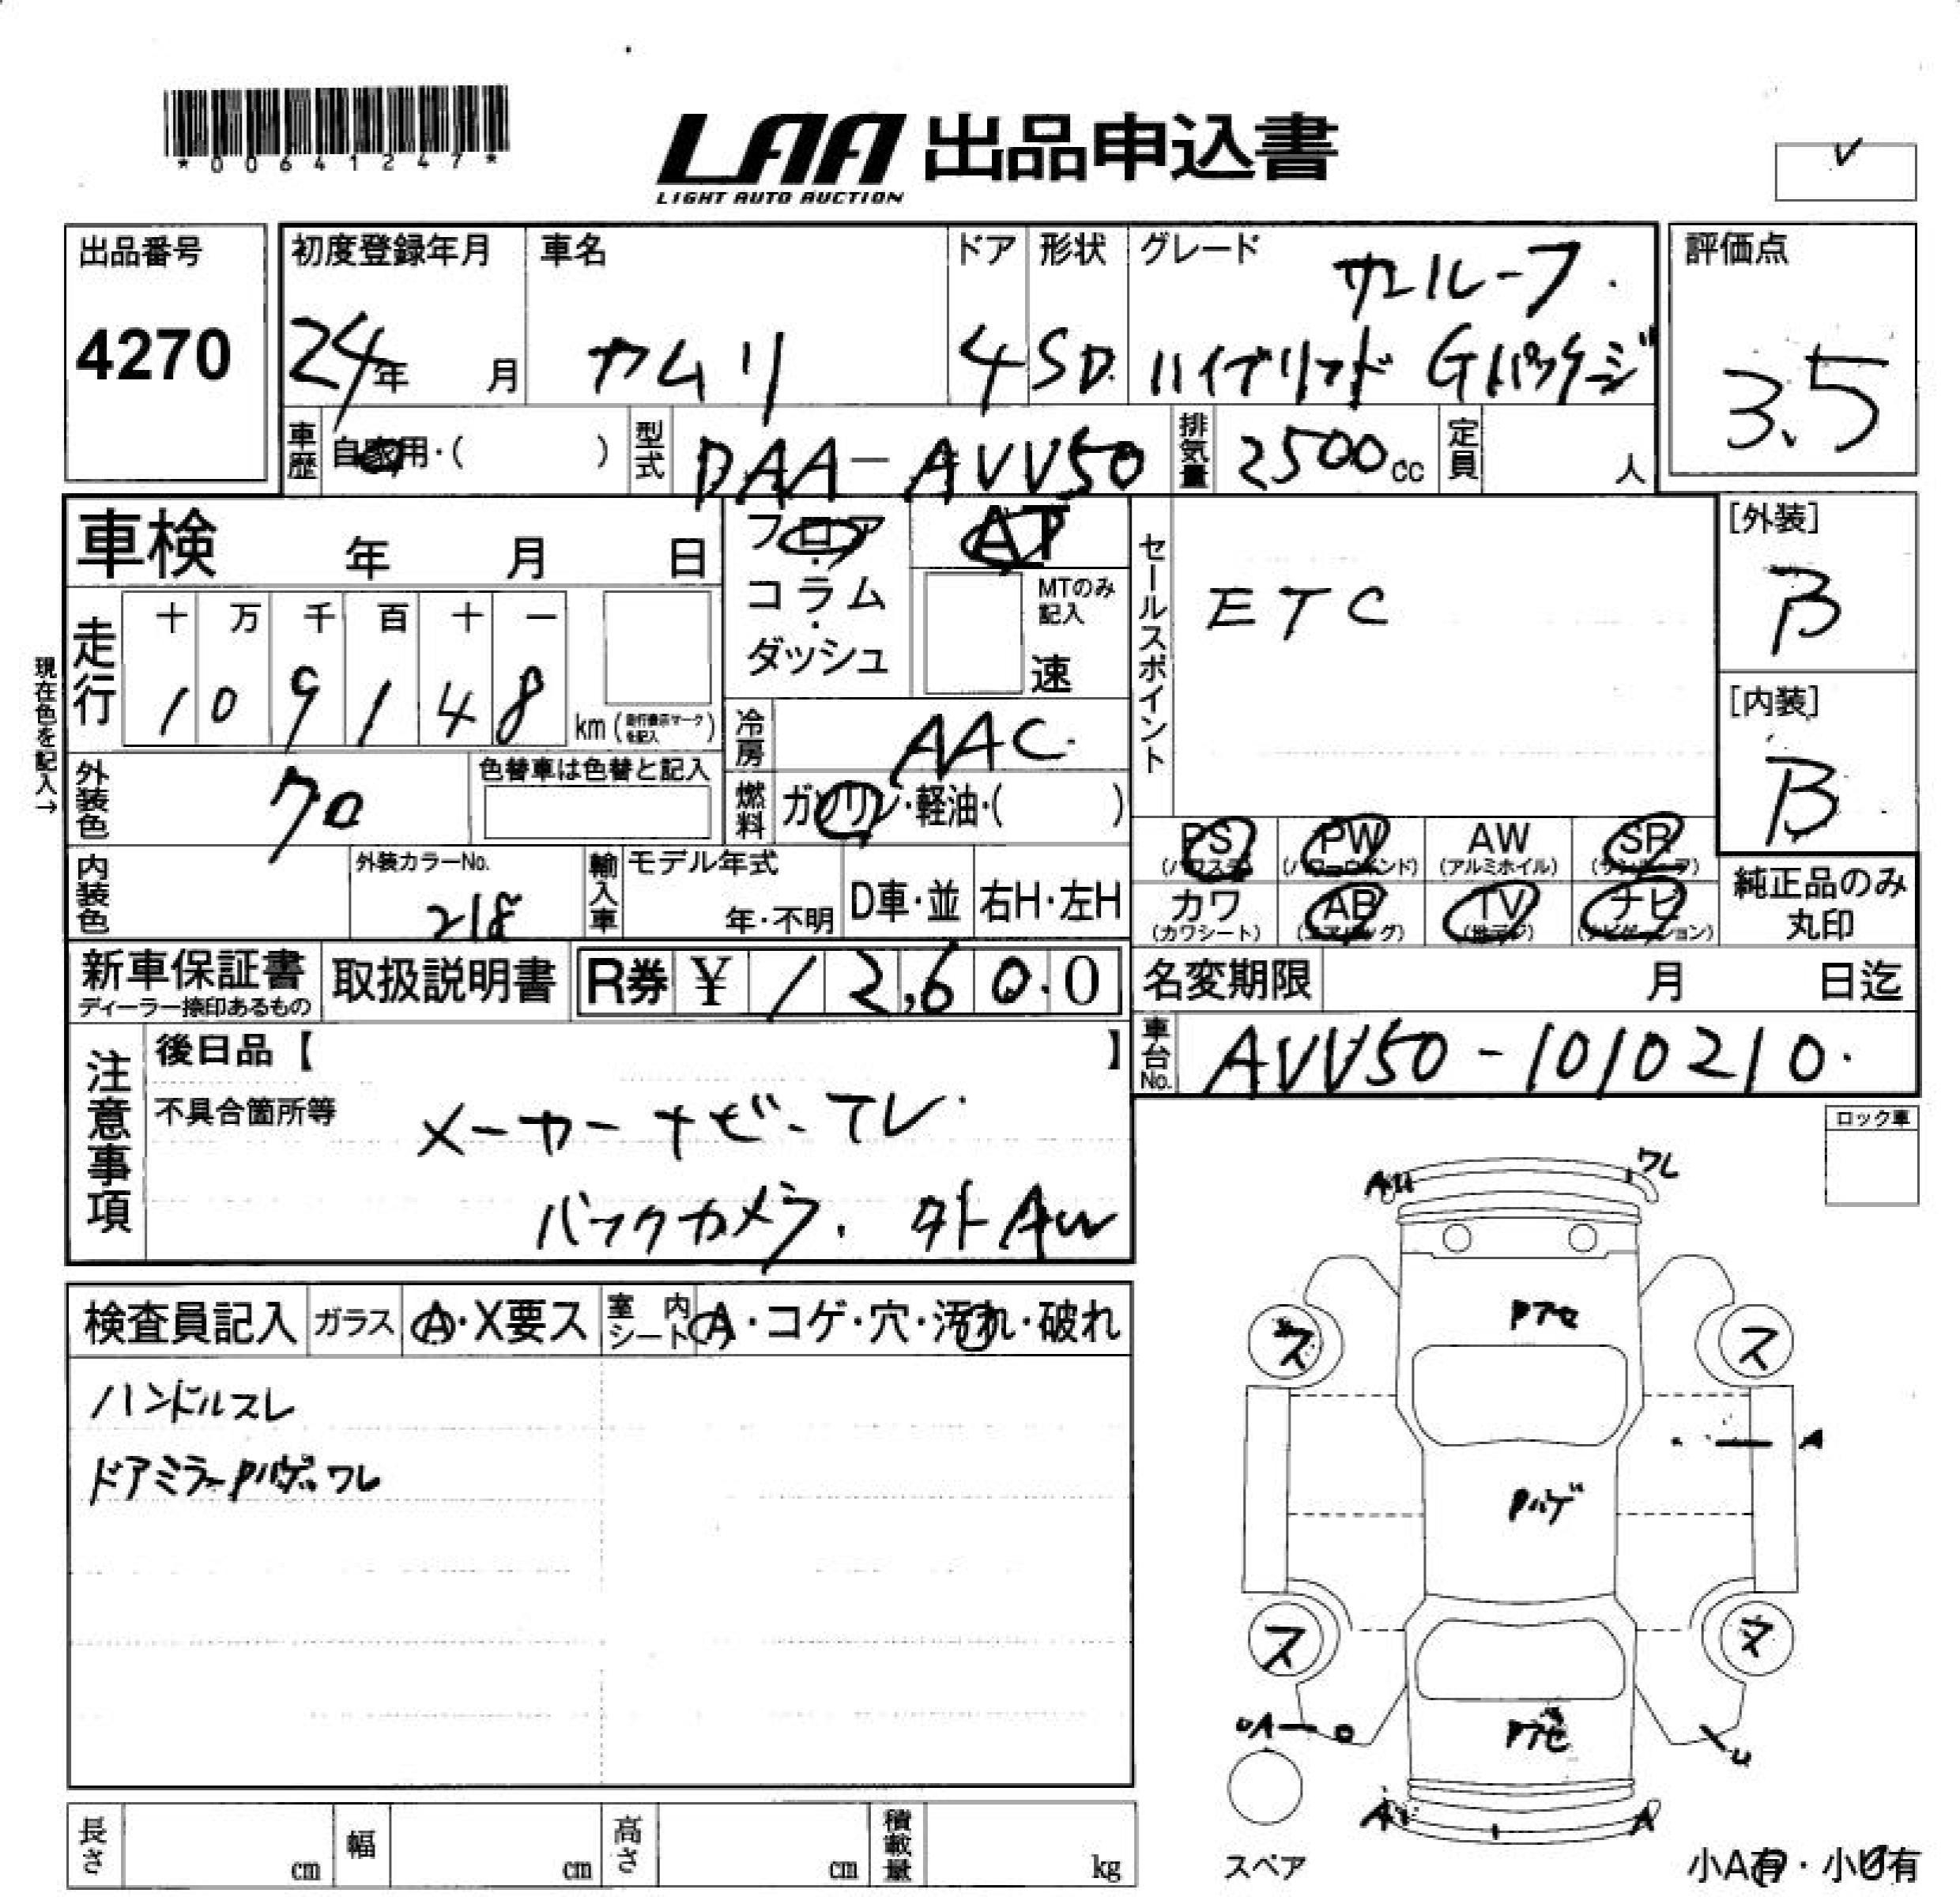 *00641247*
LAA 出品申込書
LIGHT AUTO AUCTION
出品番号
4270
初度登録年月
24年 月
車名
カムリ
ドア
4
形状
SD
グレード
サンルーフ.
ハイブリッド Gパッケージ
評価点
3.5
車歴 自家用・( )
型式 DAA-AVV50
排気量 2500cc
定員 人
車検 年 月 日
現在色を記入→
走行
十 万 千 百 十 一
1 0 9 1 4 8
km(走行表示マークを記入)
フロア・コラム・ダッシュ
AT
MTのみ記入
速
冷房 AAC
燃料 ガソリン・軽油・( )
セールスポイント
ETC
[外装]
B
[内装]
B
外装色 クロ
色替車は色替と記入
内装色
外装カラーNo.
218
輸入車
モデル年式
年・不明
D車・並
右H・左H
PS (パワステ)
PW (パワーウインド)
AW (アルミホイル)
SR (サンルーフ)
カワ (カワシート)
AB (エアバッグ)
TV (地デジ)
ナビ (ナビゲーション)
純正品のみ丸印
新車保証書
ディーラー捺印あるもの
取扱説明書
R券 ¥ 12,600
名変期限 月 日迄
車台No. AVV50-1010210.
注意事項
後日品【 】
不具合箇所等
メーカーナビ-TV.
バックカメラ. 外AW
ロック車
検査員記入
ガラス A・X要ス
室内シート A・コゲ・穴・汚れ・破れ
ハンドルスレ
ドアミラーPハゲ.ワレ
AU
ワレ
Pアセ
ス
ス
A
Pハゲ
ス
ス
U
Pアセ
A
スペア
小A有・小U有
長さ cm
幅 cm
高さ cm
積載量 kg